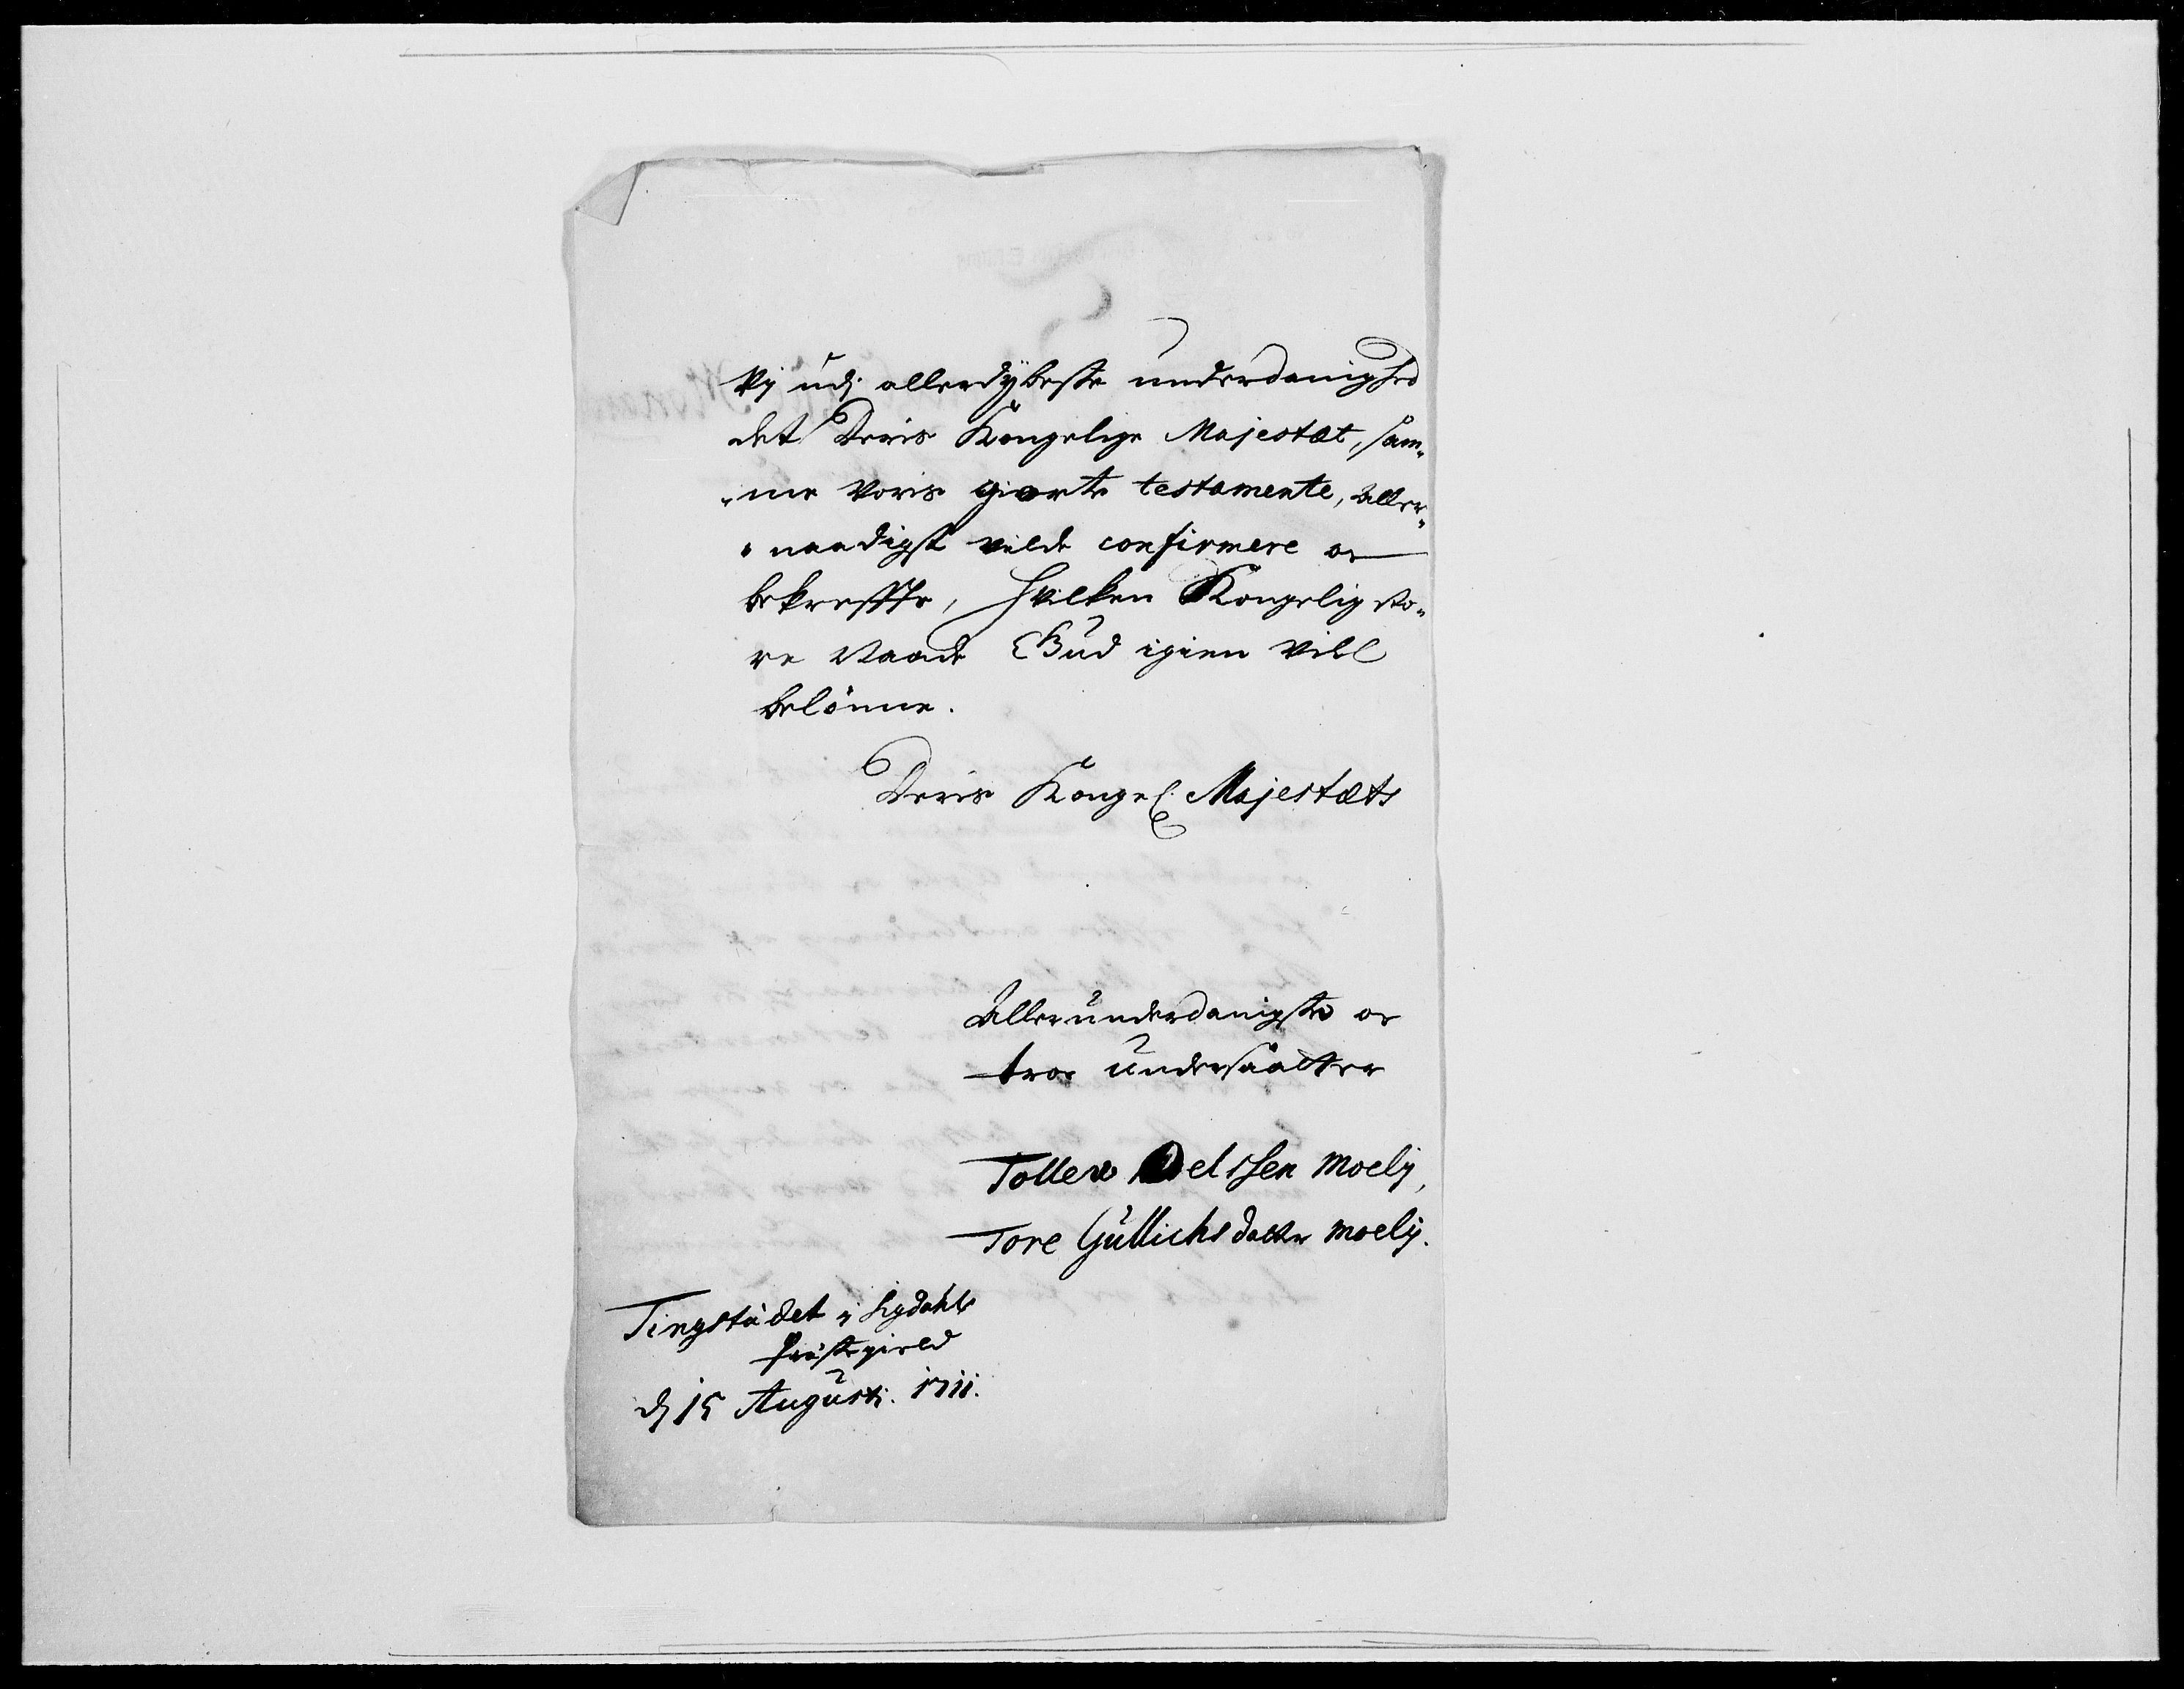 Vij udj allerdÿbeste underdanighed
det Deris Kongelige Majestæt, sam„
„me Voris giorte testamente, Aller„
„naadigst vilde confirmere og
bekreffte, Hvilken Kongelig sto„
re Naade Gud igien vill
belönne.
Deris Kongel: Majestæts
Allerunderdanigste og
troe undersaatter
Tollew Oelssen Moelÿ,
Tore Gullichsdatter Moelÿ.
Tingstædet i Sigdahls
Præstegield
dj 15 Augustj. 1711.